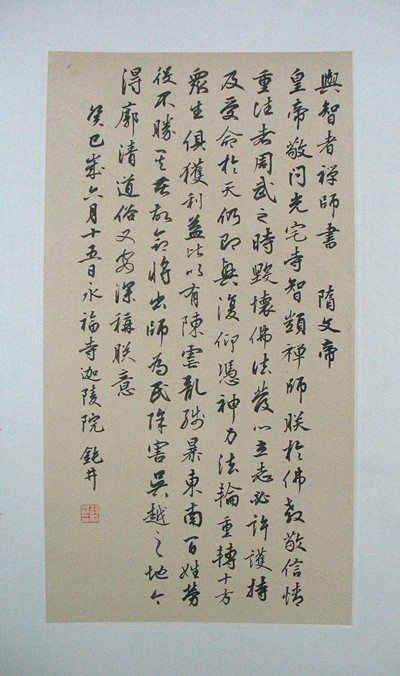 與智者禅師書 隋文帝
皇帝敬问光宅寺智顗禅師朕於佛教敬信情
重往者周武之時毁壞佛法發心立志必許護持
及受命於天仍即興復仰憑神力法輪重轉十方
衆生俱獲利益比以有陳虐亂殘暴東南百姓勞
役不勝其苦故命將出師為民除害吳越之地今
得廓清道俗又安深稱朕意
癸巳歲六月十五日永福寺迦陵院